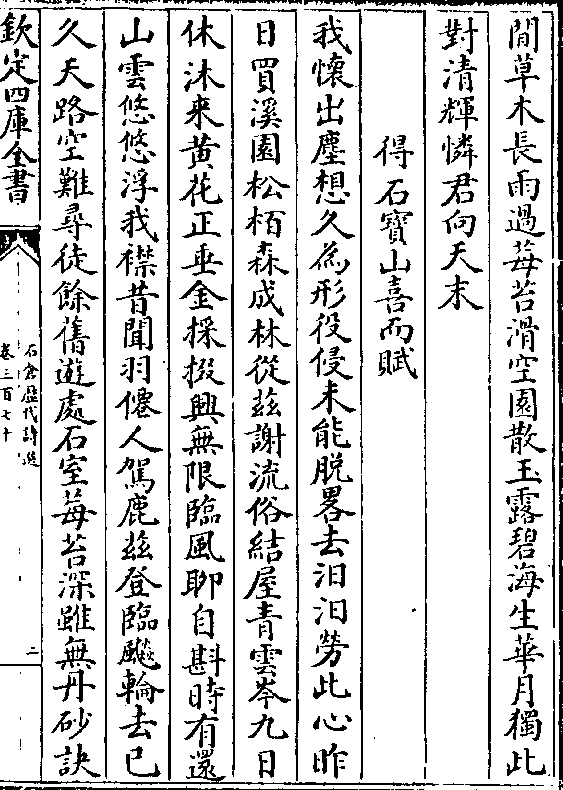 閒草木長雨過莓苔滑空園散玉露碧海生華月獨此
對清輝憐君向天末
得石寶山喜而賦
我懷出塵想久為形役侵未能脫畧去汩汩勞此心昨
日買溪園松栢森成林從兹謝流俗結屋青雲岑九日
休沐来黄花正垂金採掇興無限臨風聊自斟時有還
山雲悠悠浮我襟昔聞羽僊人駕鹿兹登臨飈輪去已
久天路空難尋徒餘舊遊處石室莓苔深雖無丹砂訣
欽定四庫全書
石倉歷代詩選
卷三百七十
二